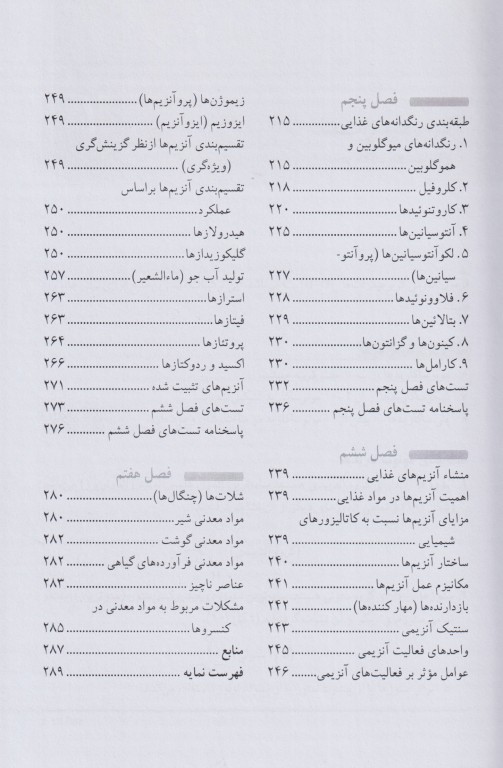 فصل پنجم
طبقه‌بندی رنگدانه‌های غذایی............... ۲۱۵
۱. رنگدانه‌های میوگلوبین و
هموگلوبین ............................... ۲۱۵
۲. کلروفیل .................................. ۲۱۸
۳. کاروتنوئیدها ............................ ۲۲۰
۴. آنتوسیانین‌ها ............................ ۲۲۵
۵. لکوآنتوسیانین‌ها (پروآنتو-
سیانین‌ها) ............................... ۲۲۷
۶. فلاوونوئیدها ............................ ۲۲۸
۷. بتالائین‌ها ............................... ۲۲۹
۸. کینون‌ها و گزانتون‌ها.................... ۲۳۰
۹. کارامل‌ها ................................ ۲۳۰
تست‌های فصل پنجم ....................... ۲۳۲
پاسخنامه تست‌های فصل پنجم ........... ۲۳۶
فصل ششم
منشاء آنزیم‌های غذایی .................... ۲۳۹
اهمیت آنزیم‌ها در مواد غذایی............. ۲۳۹
مزایای آنزیم‌ها نسبت به کاتالیزورهای
شیمیایی ................................. ۲۳۹
ساختار آنزیم‌ها ............................ ۲۴۰
مکانیزم عمل آنزیم‌ها ...................... ۲۴۱
بازدارنده‌ها (مهار کننده‌ها) ................ ۲۴۲
سنتیک آنزیمی ............................. ۲۴۳
واحدهای فعالیت آنزیمی .................. ۲۴۵
عوامل مؤثر بر فعالیت‌های آنزیمی........ ۲۴۶
زیموژن‌ها (پروآنزیم‌ها) ..................... ۲۴۹
ایزوزیم (ایزوآنزیم) ......................... ۲۴۹
تقسیم‌بندی آنزیم‌ها ازنظر گزینش‌گری
(ویژه‌گری) ............................... ۲۴۹
تقسیم‌بندی آنزیم‌ها براساس
عملکرد.................................. ۲۵۰
هیدرولازها ................................. ۲۵۰
گلیکوزیدازها ............................... ۲۵۰
تولید آب جو (ماءالشعیر) .................. ۲۵۷
استرازها .................................... ۲۶۳
فیتازها ...................................... ۲۶۳
پروتئازها ................................... ۲۶۴
اکسید و ردوکتازها ......................... ۲۶۶
آنزیم‌های تثبیت شده ....................... ۲۷۱
تست‌های فصل ششم ...................... ۲۷۳
پاسخنامه تست‌های فصل ششم ............ ۲۷۶
فصل هفتم
شلات‌ها (چنگال‌ها) ........................ ۲۸۰
مواد معدنی شیر ........................... ۲۸۰
مواد معدنی گوشت ........................ ۲۸۲
مواد معدنی فرآورده‌های گیاهی ........... ۲۸۲
عناصر ناچیز ............................... ۲۸۳
مشکلات مربوط به مواد معدنی در
کنسروها ................................. ۲۸۵
منابع ........................................ ۲۸۷
فهرست نمایه .............................. ۲۸۹